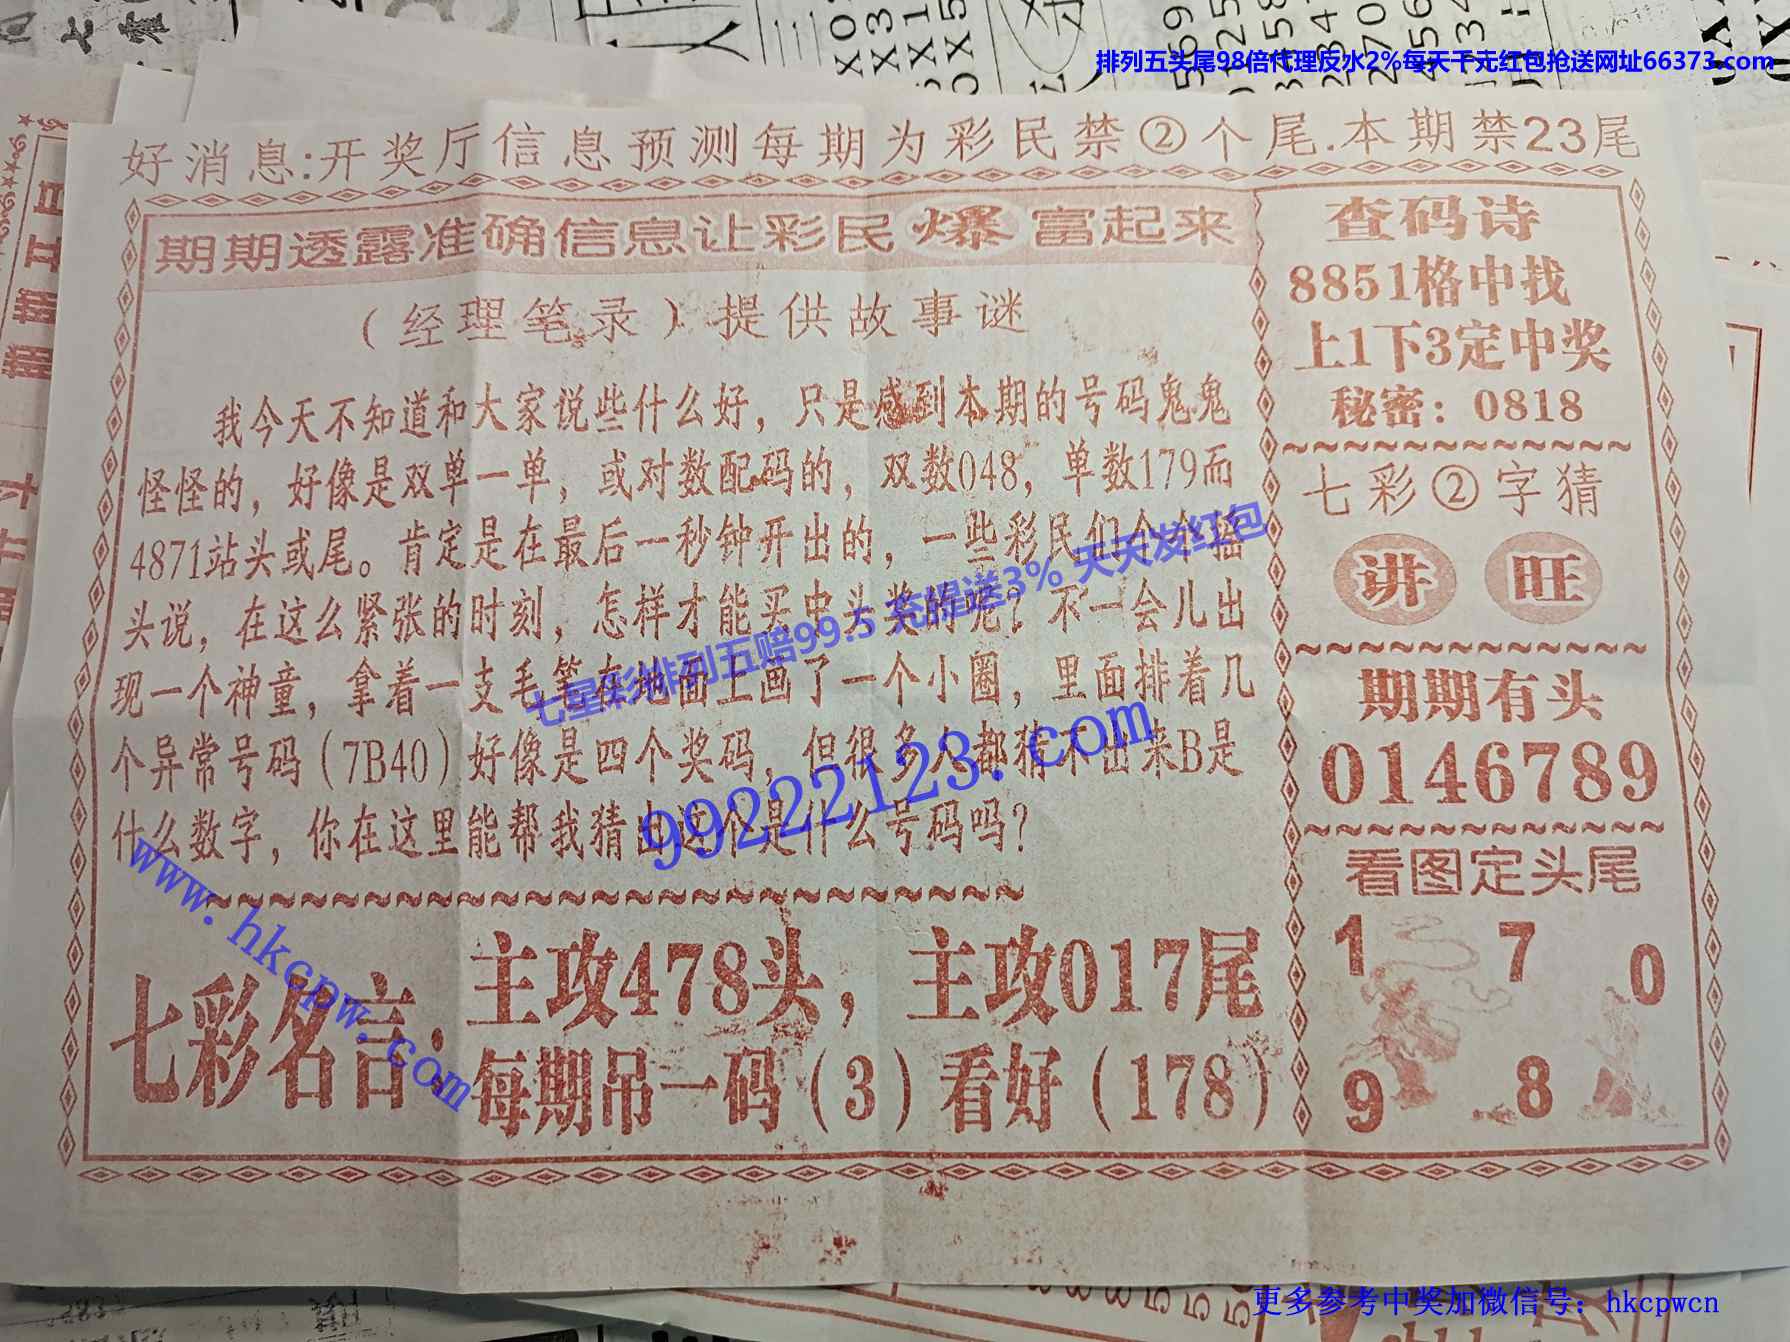 排列五头尾98倍代理反水2%每天千元红包抢送网址66373.com
好消息:开奖厅信息预测每期为彩民禁②个尾.本期禁23尾
期期透露准确信息让彩民爆富起来
（经理笔录）提供故事谜
我今天不知道和大家说些什么好，只是感到本期的号码鬼鬼
怪怪的，好像是双单一单，或对数配码的，双数048，单数179而
4871站头或尾。肯定是在最后一秒钟开出的，一些彩民们个个摇
头说，在这么紧张的时刻，怎样才能买中头奖的呢？不一会儿出
现一个神童，拿着一支毛笔在地面上画了一个小圈，里面排着几
个异常号码（7B40）好像是四个奖码，但很多人都猜不出来B是
什么数字，你在这里能帮我猜出这个是什么号码吗？
七星彩排列五赔99.5 充提送3% 天天发红包
99222123.com
www.hkcpw.com
七彩名言：
主攻478头，主攻017尾
每期吊一码（3）看好（178）
查码诗
8851格中找
上1下3定中奖
秘密：0818
七彩②字猜
讲 旺
期期有头
0146789
看图定头尾
1 7 0
9 8
更多参考中奖加微信号：hkcpwcn